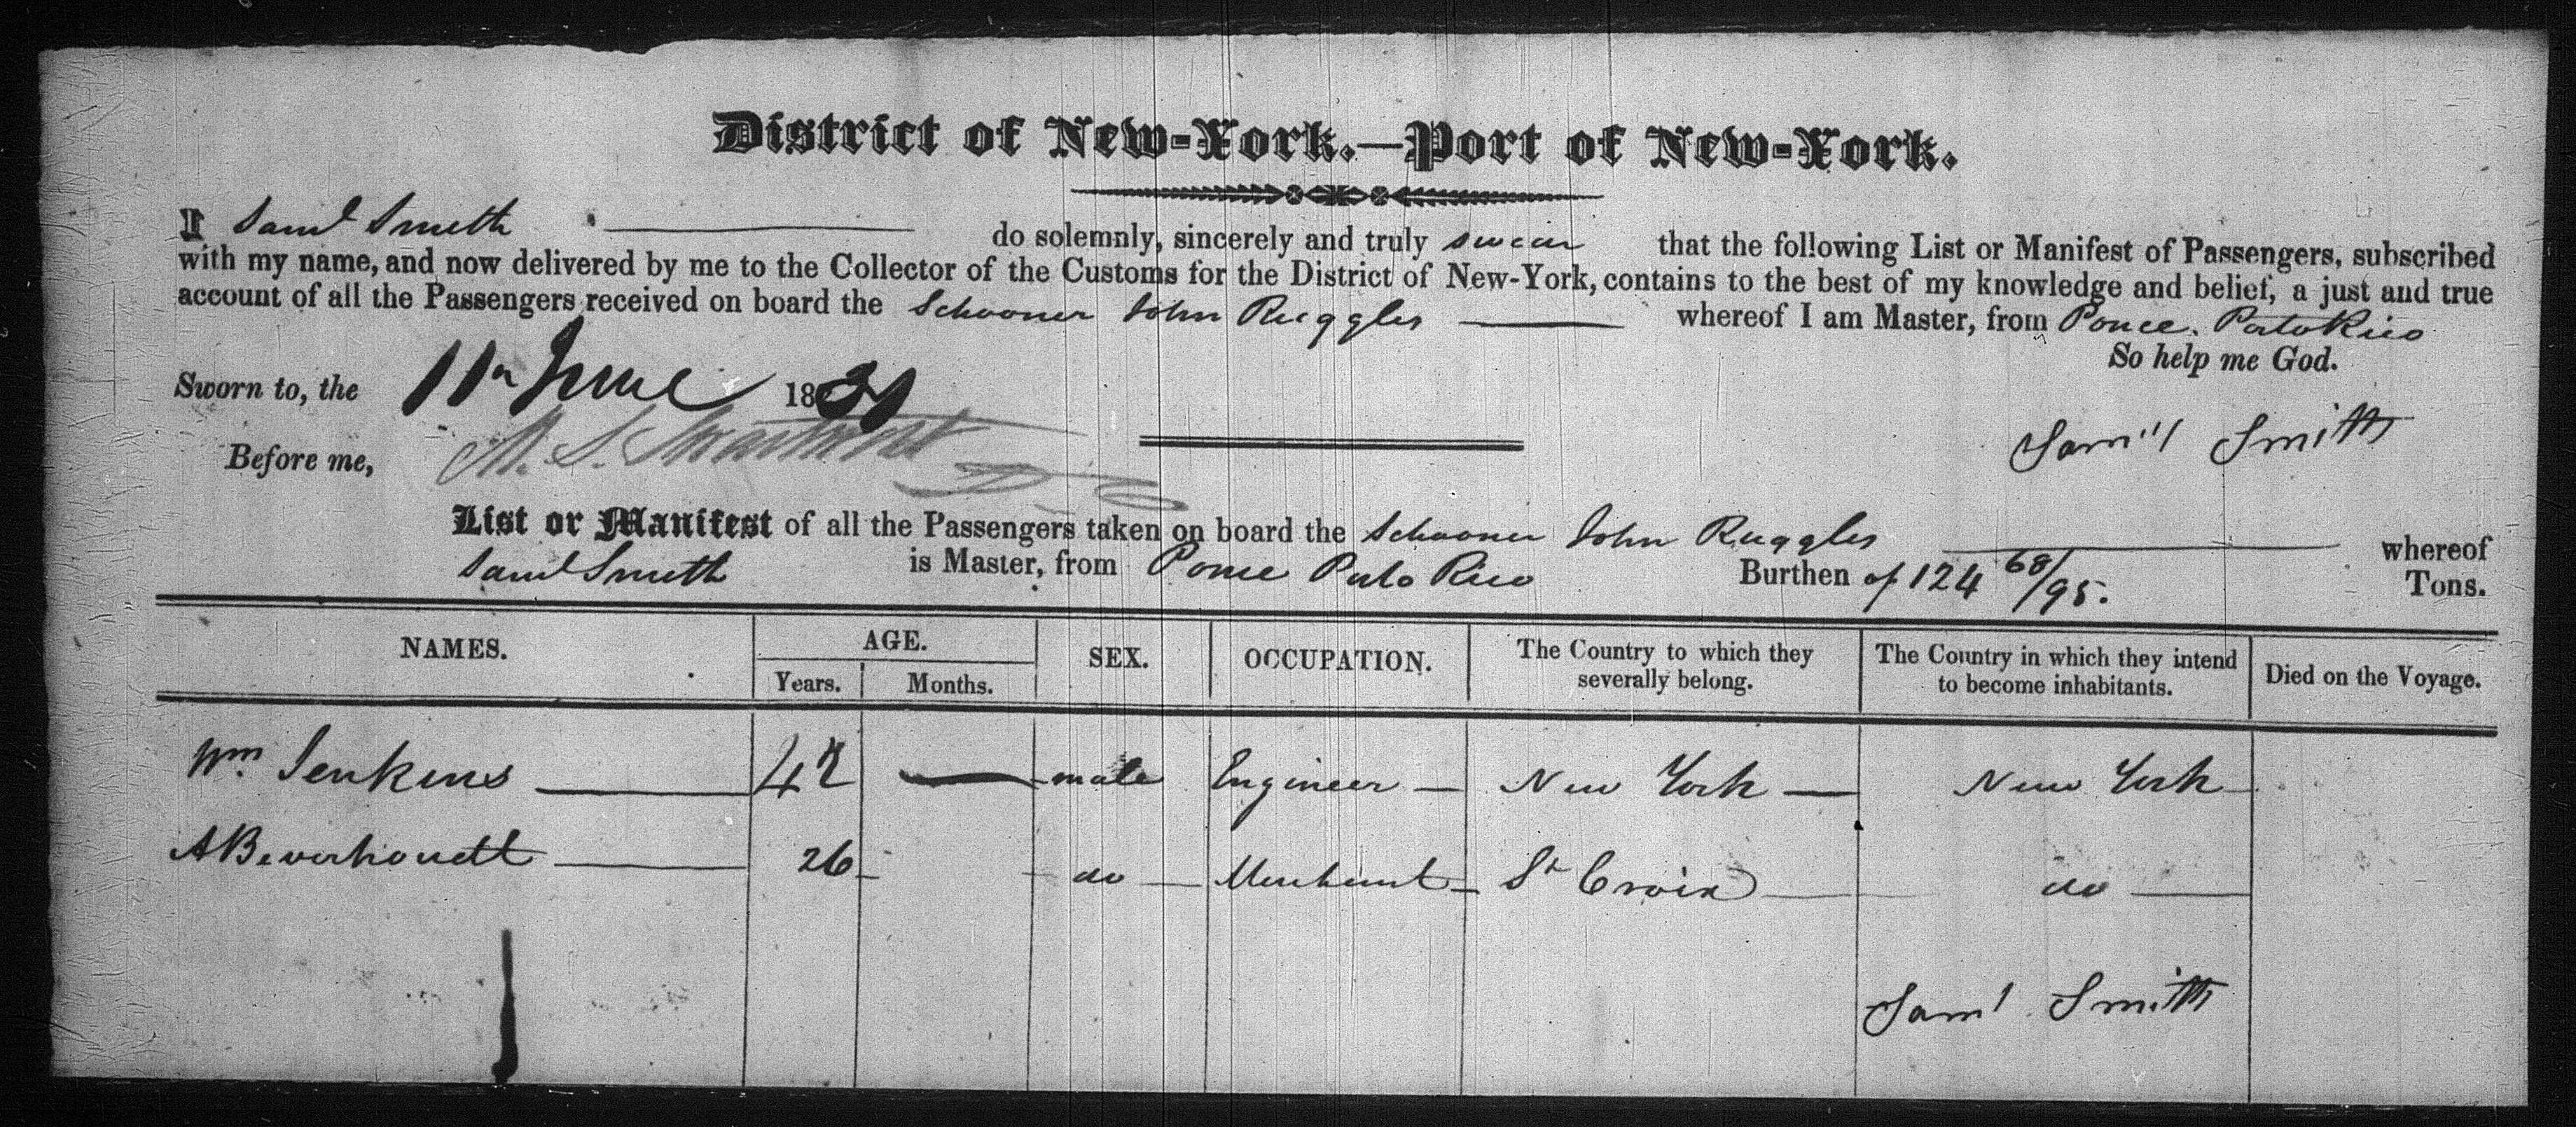 District of New-York.—Port of New-York.
I Saml Smith do solemnly, sincerely and truly swear that the following List or Manifest of Passengers, subscribed
with my name, and now delivered by me to the Collector of the Customs for the District of New-York, contains to the best of my knowledge and belief, a just and true
account of all the Passengers received on board the Schooner John Ruggles whereof I am Master, from Ponce. Porto Rico
So help me God.
Sworn to, the 11th June 1831
Before me,
Sam'l Smith
List or Manifest of all the Passengers taken on board the Schooner John Ruggles whereof
Saml Smith is Master, from Ponce Porto Rico Burthen of 124 68/95. Tons.
NAMES. AGE. SEX. OCCUPATION. The Country to which they severally belong. The Country in which they intend to become inhabitants. Died on the Voyage.
Years. Months.
Wm Jenkins 42 — male Engineer — New York — New York
A Beverhoudt 26 do Merchant St Croix do
Saml Smith